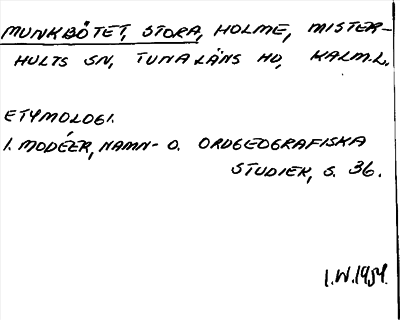 MUNKBÖTET, STORA, HOLME, MISTER-
HULTS SN, TUNALÄNS HD, KALM.L.
ETYMOLOGI.
I. MODÉER, NAMN- O. ORDGEOGRAFISKA
STUDIER, S. 36.
I.W.1954.